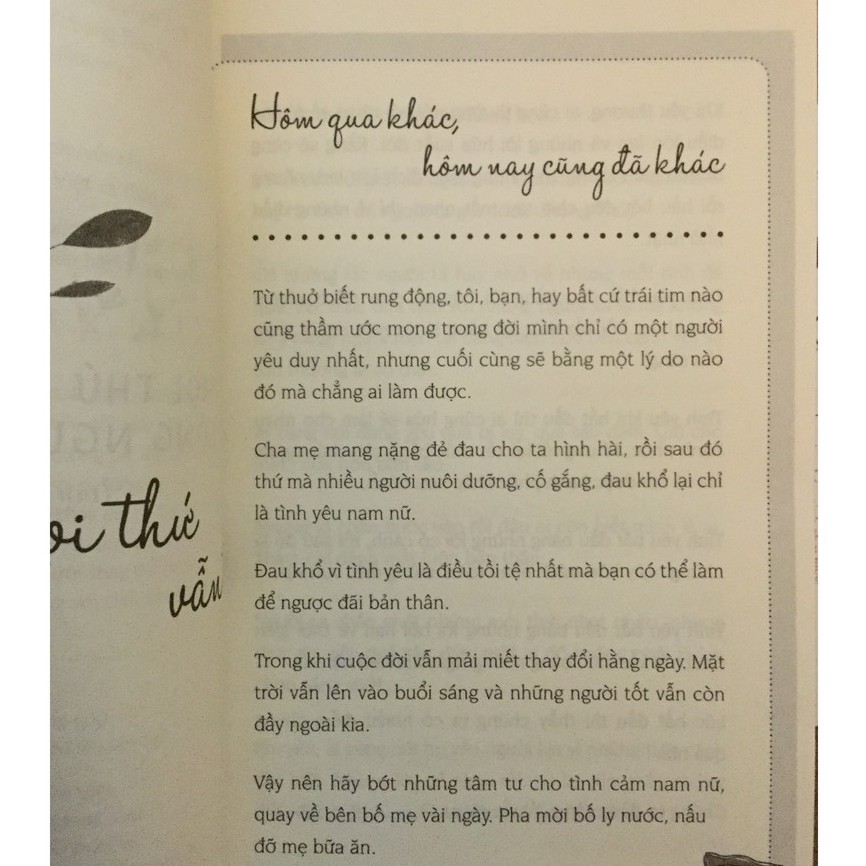 Hôm qua khác,
hôm nay cũng đã khác
Từ thuở biết rung động, tôi, bạn, hay bất cứ trái tim nào
cũng thầm ước mong trong đời mình chỉ có một người
yêu duy nhất, nhưng cuối cùng sẽ bằng một lý do nào
đó mà chẳng ai làm được.
Cha mẹ mang nặng đẻ đau cho ta hình hài, rồi sau đó
thứ mà nhiều người nuôi dưỡng, cố gắng, đau khổ lại chỉ
là tình yêu nam nữ.
Đau khổ vì tình yêu là điều tồi tệ nhất mà bạn có thể làm
để ngược đãi bản thân.
Trong khi cuộc đời vẫn mải miết thay đổi hằng ngày. Mặt
trời vẫn lên vào buổi sáng và những người tốt vẫn còn
đầy ngoài kia.
Vậy nên hãy bớt những tâm tư cho tình cảm nam nữ,
quay về bên bố mẹ vài ngày. Pha mời bố ly nước, nấu
đỡ mẹ bữa ăn.
thứ
vẫn